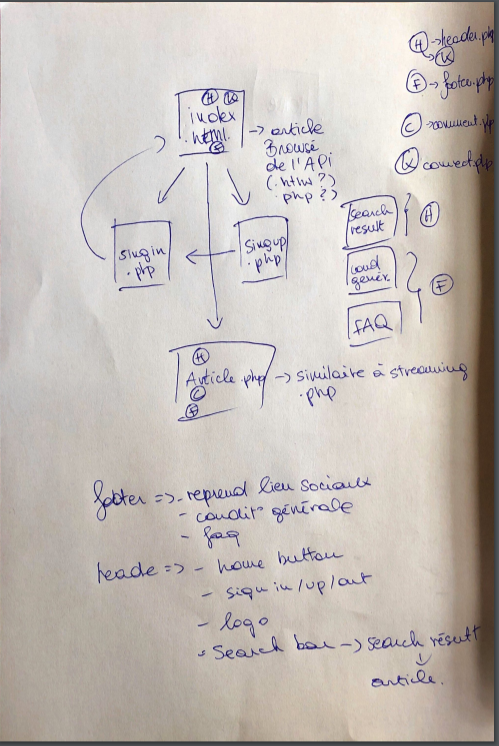 (H) → header.ph
→ (K)
(F) → footer.php
(C) → comment.php
(K) connect.php
(H) (K)
index
.html.
(F)
→ article
Browsé
de l'API
(.html ?)
.php ?)
singin
.php
singup
.php
search
result
(H)
cond
génér.
(F)
FAQ
(H)
Article.php → similaire à streaming
.php
(C)
(F)
footer => - reprend lien sociaux
- condit° générale
- faq
heade => - home button
- sign in/up/out
- logo
- Search bar → search résult
↓
article.